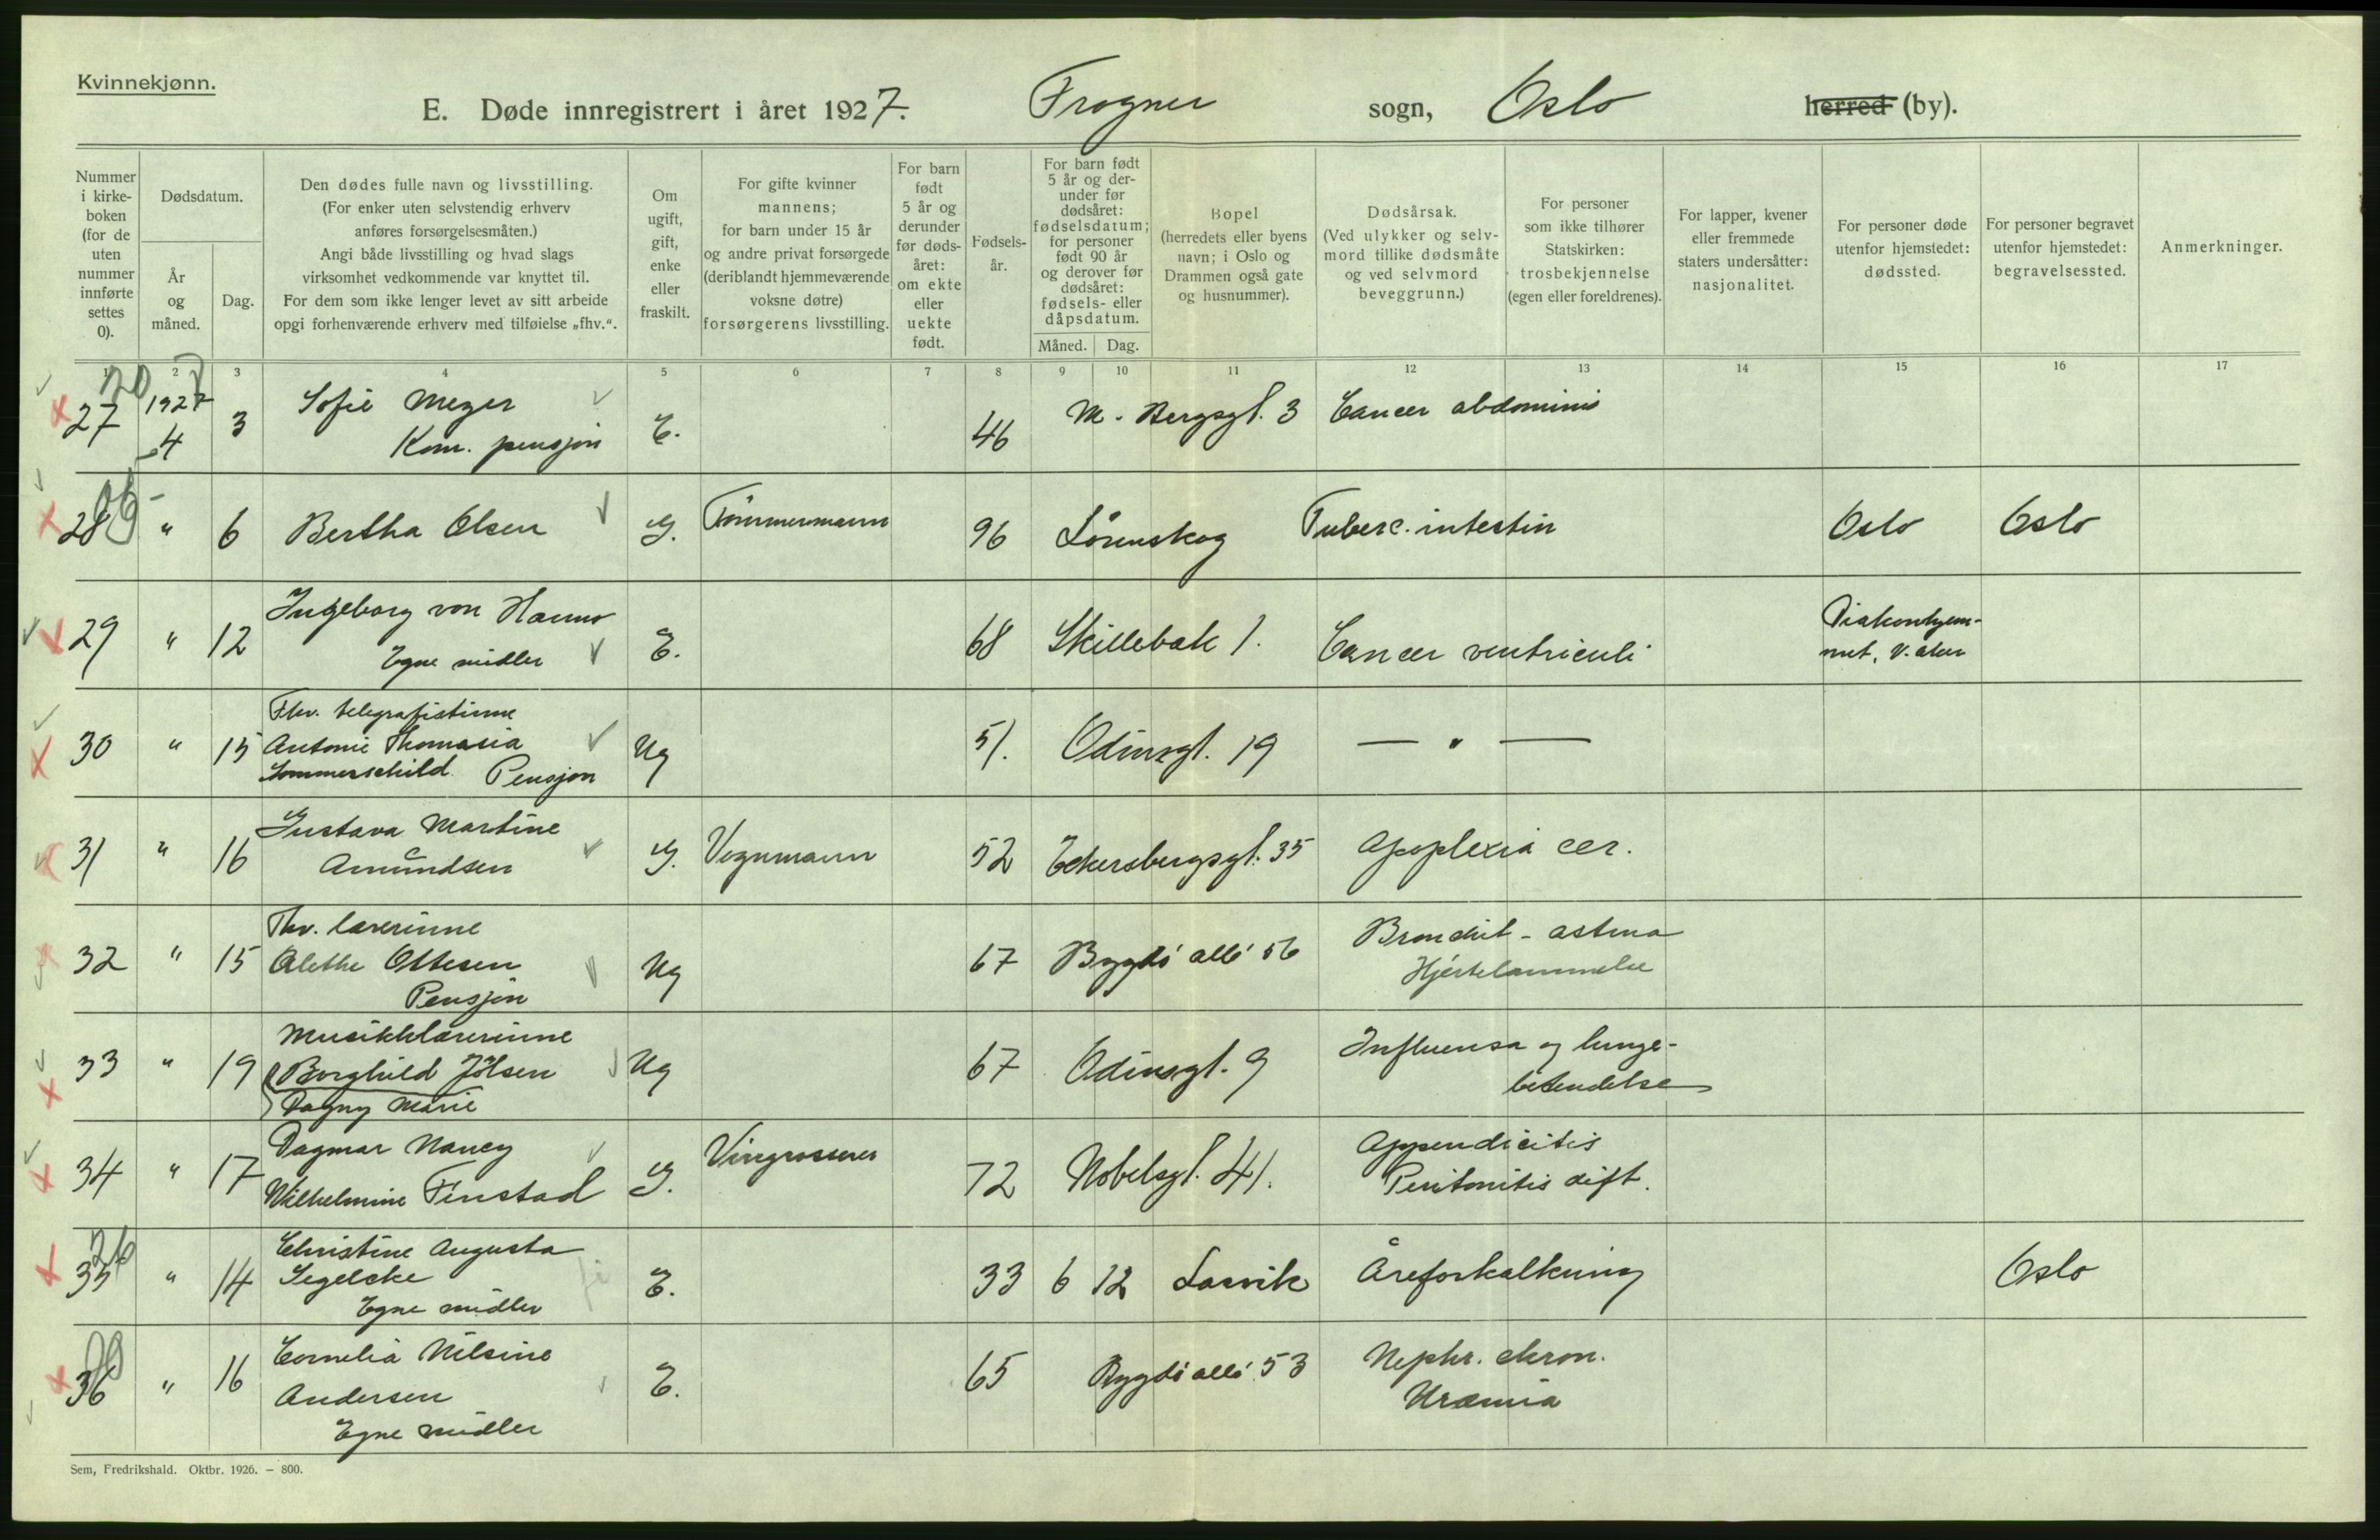 Kvinnekjønn.
E. Døde innregistrert i året 1927. Frogner sogn, Oslo herred (by).
Nummer i kirke-boken (for de uten nummer innførte settes 0).
Dødsdatum.
År og måned.
Dag.
Den dødes fulle navn og livsstilling.
(For enker uten selvstendig erhverv
anføres forsørgelsesmåten.)
Angi både livsstilling og hvad slags
virksomhet vedkommende var knyttet til.
For dem som ikke lenger levet av sitt arbeide
opgi forhenværende erhverv med tilføielse „fhv.“.
Om ugift, gift, enke eller fraskilt.
For gifte kvinner
mannens;
for barn under 15 år
og andre privat forsørgede
(deriblandt hjemmeværende
voksne døtre)
forsørgerens livsstilling.
For barn født 5 år og derunder før døds-året: om ekte eller uekte født.
Fødsels-år.
For barn født 5 år og der-under før dødsåret: fødselsdatum; for personer født 90 år og derover før dødsåret: fødsels- eller dåpsdatum.
Måned. Dag.
Bopel
(herredets eller byens
navn; i Oslo og
Drammen også gate
og husnummer).
Dødsårsak.
(Ved ulykker og selv-
mord tillike dødsmåte
og ved selvmord
beveggrunn.)
For personer
som ikke tilhører
Statskirken:
trosbekjennelse
(egen eller foreldrenes).
For lapper, kvener
eller fremmede
staters undersåtter:
nasjonalitet.
For personer døde
utenfor hjemstedet:
dødssted.
For personer begravet
utenfor hjemstedet:
begravelsessted.
Anmerkninger.
1 2 3 4 5 6 7 8 9 10 11 12 13 14 15 16 17
27 1927 4 3 Sofie Meyer E. 46 M. Bergsgt. 3 Cancer abdominis
Kom. pensjon
28 " 6 Bertha Olsen G. Tømmermann 96 Lørenskog Tuberc. intestin Oslo Oslo
29 " 12 Ingeborg von Hanno E. 68 Skillebæk 1. Cancer ventriculi Diakonhjem-
Egne midler met, V. Aker
30 " 15 Fhv. telegrafistinne
Antonie Thomasia Ug 51. Odinsgt. 19 — " —
Sommerschild. Pensjon
31 " 16 Gustava Martine G. Vognmann 52 Eckersbergsgt. 35 Apoplexia cer.
Amundsen
32 " 15 Fhv. lærerinne
Alethe Ottesen Ug 67 Bygdø allé 56 Bronchit - astma
Pensjon Hjertelammelse
33 " 19 Musikklærerinne
Borghild Jölsen Ug 67 Odinsgt. 9 Influensa og lunge-
Dagny Marie betendelse
34 " 17 Dagmar Nancy G. Vingrosserer 72 Nobelsgt. 41. Appendicitis
Wilhelmine Finstad Peritonitis diff.
35 " 14 Christine Augusta
Segelcke E. 33 6 12 Larvik Åreforkalkning Oslo
Egne midler
36 " 16 Cornelia Nilsine
Andersen E. 65 Bygdø allé 53 Nephr. chron.
Egne midler Uræmia
Sem, Fredrikshald. Oktbr. 1926. – 800.